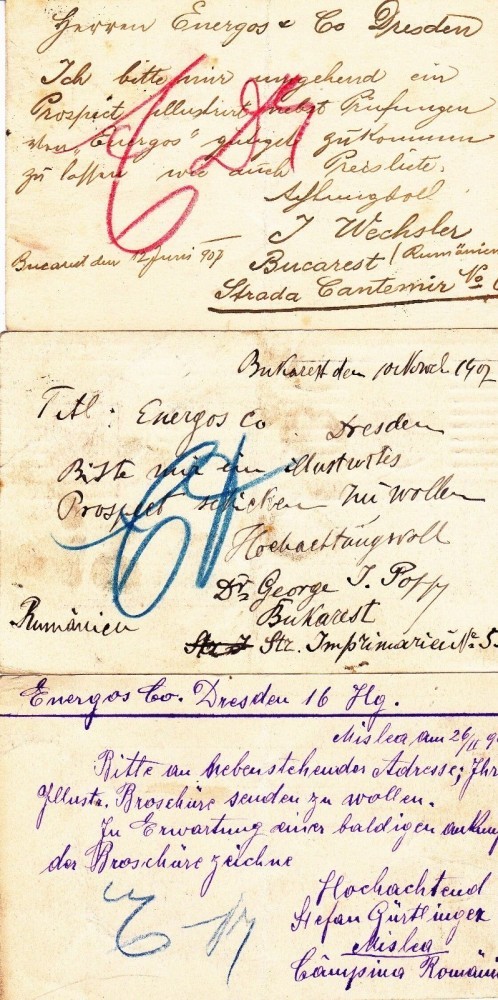 Herren Energos & Co Dresden
Ich bitte mir umgehend ein
Prospect illustrirt nebst Prüfungen
von "Energos" gunget zukommen
zu lassen wie auch Preisliste.
Achtungsvoll
J Wechsler
Bucarest den 12 Juni 907
Bucarest (Rumänien
Strada Cantemir No
Bukarest den 1907
Titl: Energos Co Dresden
Bitte mir ein illustrirtes
Prospect schicken zu wollen
Hochachtungsvoll
Dr. George J. Popp
Bukarest
Rumänien
Str. Imprimăriei No. 5
Energos Co. Dresden 16 Hg.
Mislea, am 26/II 9
Bitte an nebenstehender Adresse; Ihr
Illustr. Broschüre senden zu wollen.
In Erwartung einer baldigen ankun
der Broschüre zeichne
Hochachtend
Stefan Gürtlinger
Mislea
Câmpina Romăni